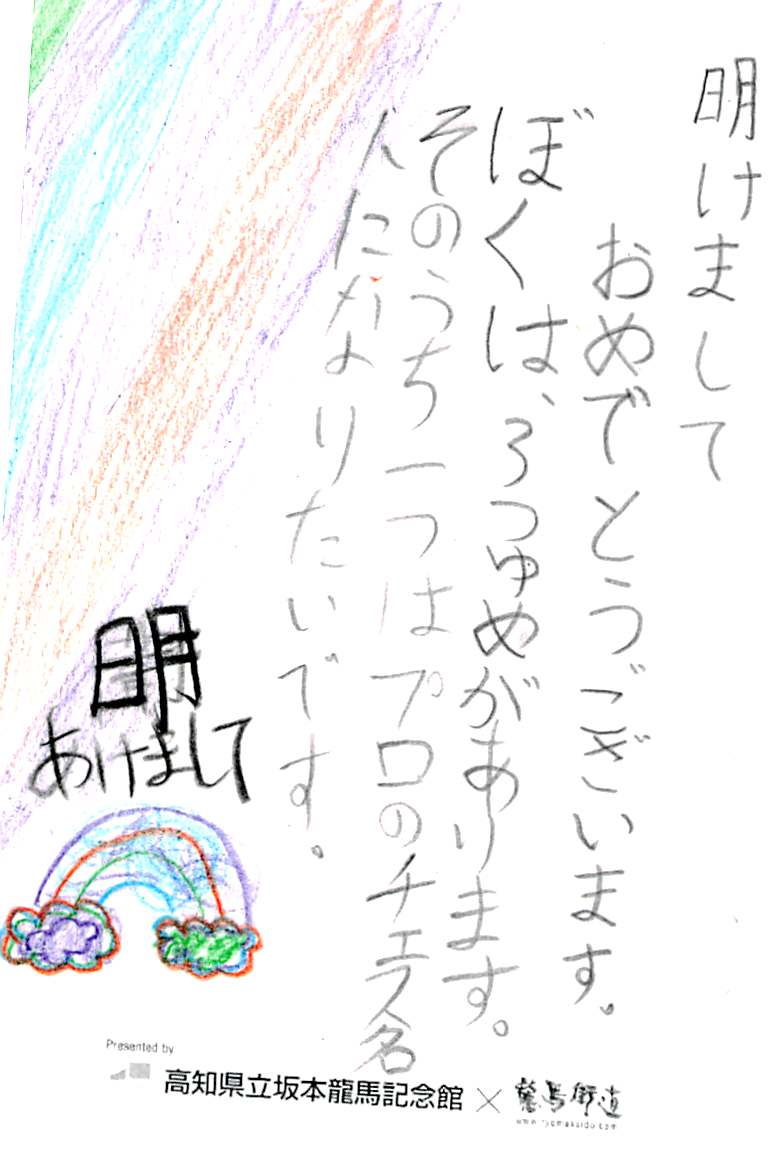 明けまして
おめでとうございます。
ぼくは、3つゆめがあります。
そのうち一つはプロのチェス名
人になりたいです。
明
あけまして
Presented by
高知県立坂本龍馬記念館 × 龍馬街道
www.ryomakaido.com